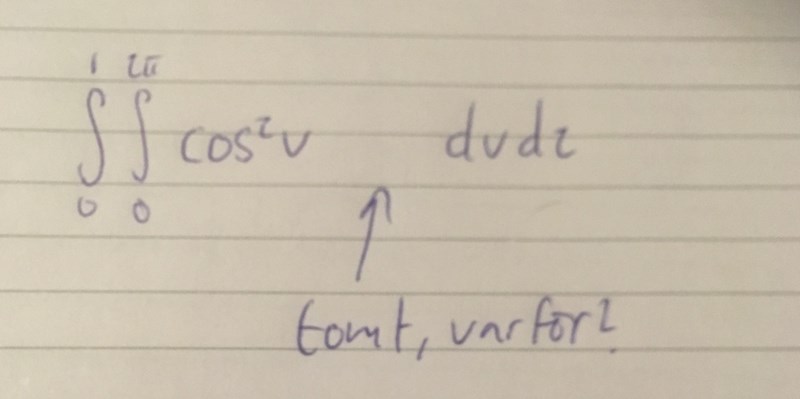 ∫₀¹ ∫₀²π cos²v dv dz
tomt, varför?